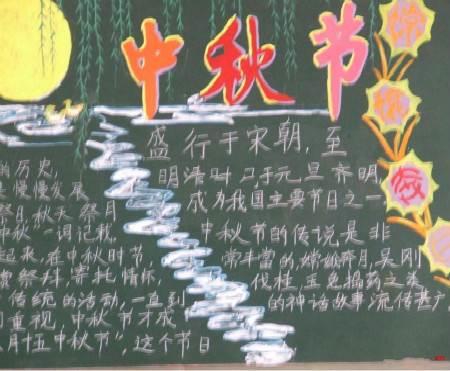 中秋节
的历史,
是慢慢发展
祭日,秋天祭月
中秋一词记载,
起来,在中秋时节,
赏祭拜,寄托情怀,
传统的活动,一直到
重视,中秋节才成
月十五中秋节",这个节日
盛行于宋朝,至
明清时,已于元旦齐名,
成为我国主要节日之一
中秋节的传说是非
常丰富的,嫦娥奔月,吴刚
伐桂,玉兔捣药之类
的神话故事流传甚广